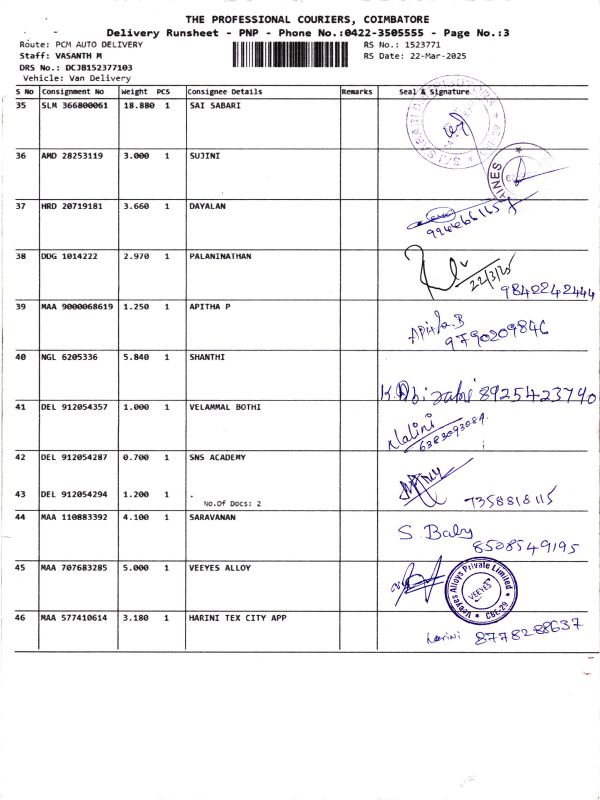 THE PROFESSIONAL COURIERS, COIMBATORE
Delivery Runsheet - PNP - Phone No.:0422-3505555 - Page No.:3
Route: PCM AUTO DELIVERY RS No.: 1523771
Staff: VASANTH M RS Date: 22-Mar-2025
DRS No.: DCJB152377103
Vehicle: Van Delivery
S No Consignment No Weight PCS Consignee Details Remarks Seal & Signature
35 SLM 366800061 18.880 1 SAI SABARI
36 AMD 28253119 3.000 1 SUJINI
37 HRD 20719181 3.660 1 DAYALAN
38 DDG 1014222 2.970 1 PALANINATHAN
22/3/25
9842242444
39 MAA 9000068619 1.250 1 APITHA P
9790209846
40 NGL 6205336 5.840 1 SHANTHI
8925423790
41 DEL 912054357 1.000 1 VELAMMAL BOTHI
Nalini
6383093084
42 DEL 912054287 0.700 1 SNS ACADEMY
43 DEL 912054294 1.200 1 .
No.Of Docs: 2
7358818115
44 MAA 110883392 4.100 1 SARAVANAN
S Baby
8508549195
45 MAA 707683285 5.000 1 VEEYES ALLOY
Veeyes Alloys Private Limited
VEEYES
CBE-29
46 MAA 577410614 3.180 1 HARINI TEX CITY APP
8778288637